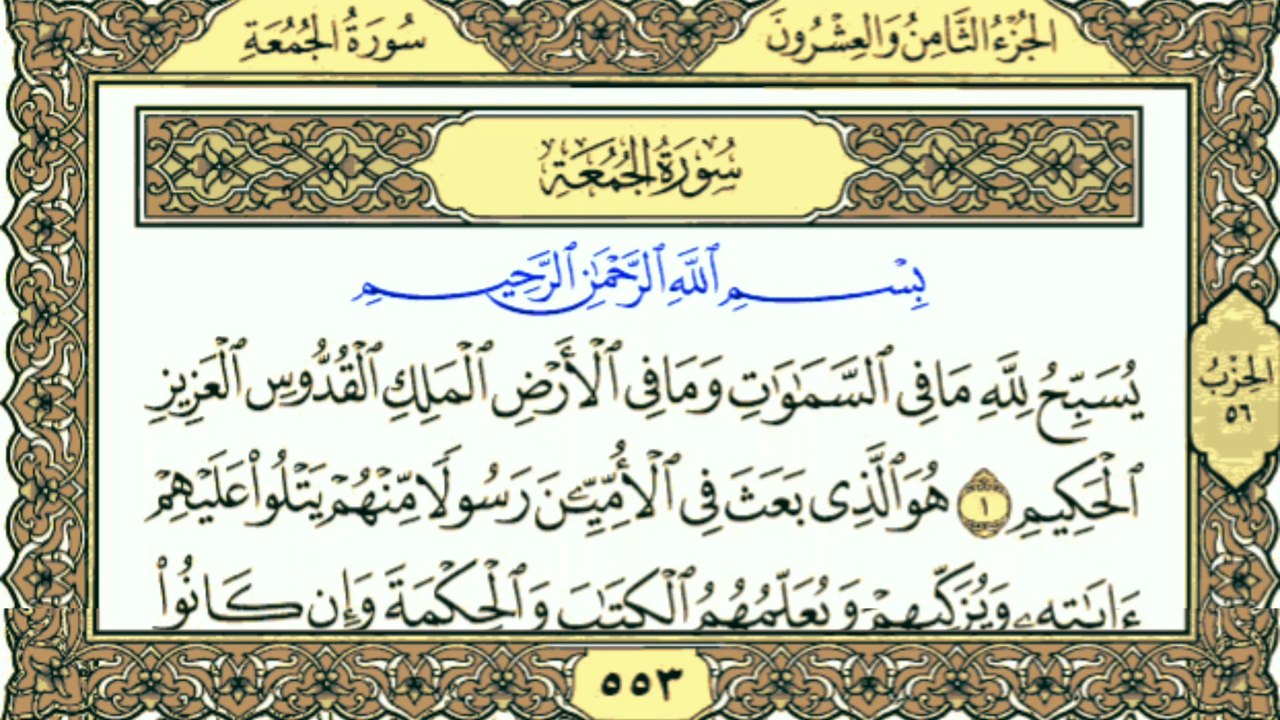 الجُزْءُ الثَّامِنُ وَالعِشْرُونَ
سُورَةُ الجُمُعَةِ
سُورَةُ الجُمُعَةِ
بِسْمِ ٱللَّهِ ٱلرَّحْمَٰنِ ٱلرَّحِيمِ
يُسَبِّحُ لِلَّهِ مَا فِى ٱلسَّمَٰوَٰتِ وَمَا فِى ٱلْأَرْضِ ٱلْمَلِكِ ٱلْقُدُّوسِ ٱلْعَزِيزِ
ٱلْحَكِيمِ ١ هُوَ ٱلَّذِى بَعَثَ فِى ٱلْأُمِّيِّـۧنَ رَسُولًا مِّنْهُمْ يَتْلُوا۟ عَلَيْهِمْ
ءَايَٰتِهِۦ وَيُزَكِّيهِمْ وَيُعَلِّمُهُمُ ٱلْكِتَٰبَ وَٱلْحِكْمَةَ وَإِن كَانُوا۟
الحِزْبُ
٥٦
٥٥٣